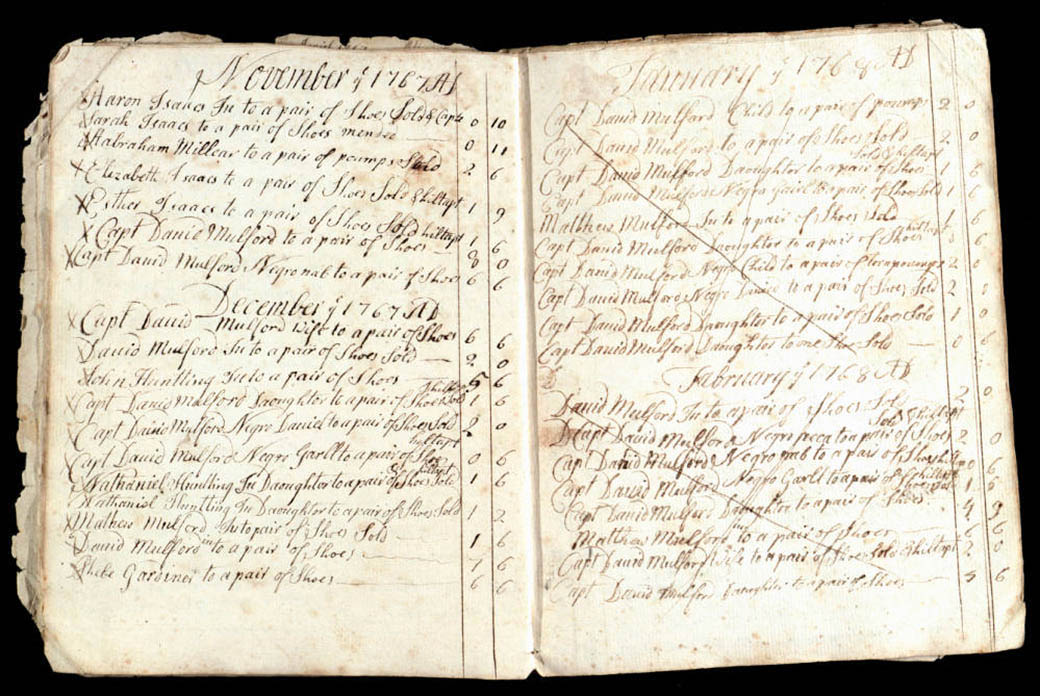 November y 1767 AD
Aaron Isaacs Ju to a pair of Shoes Sold & Capt 0 10
Sarah Isaacs to a pair of Shoes mended 0 11
Aabraham Millear to a pair of poumps Sold 2 6
Elizabeth Isaacs to a pair of Shoes Sold & hilltapt 1 9
Esther Isaacs to a pair of Shoes Sold hilltapt 1 6
Capt David Mulford to a pair of Shoes 8 0
Capt David Mulford Negro nab to a pair of Shoes 6 6
December y 1767 AD
Capt David Mulford Wife to a pair of Shoes 6 6
David Mulford Ju to a pair of Shoes Sold 2 0
John Huntting Ju to a pair of Shoes 5 6
Capt David Mulford Daoughter to a pair of Shoes Sold 1 6
Capt David Mulford Negro Daniel to a pair of Shoes Sold 2 0
hilltapt
Capt David Mulford Negro Garll to a pair of Shoe 0 6
Nathaniel Huntting Ju Daoughter to a pair of Shoes Sold & hilltapt 1 6
Nathaniel Huntting Ju Daoughter to a pair of Shoes Sold 1 2
Mathew Mulford Ju to pair of Shoes Sold 1 6
David Mulford Ju to a pair of Shoes 7 6
Phebe Gardiner to a pair of Shoes 6 6
January y 1768 AD
Capt David Mulford Child to a pair of poumps 2 0
Capt David Mulford to a pair of Shoes Sold 2 0
Sold & hilltapt
Capt David Mulford Daoughter to a pair of Shoes 1 6
Capt David Mulford Negro Garll to a pair of Shoes Sold 1 6
Matthew Mulford Ju to a pair of Shoes Sold 1 6
hilltapt
Capt David Mulford Daoughter to a pair of Shoes 6
Capt David Mulford Negro Child to a pair of poumps 2 0
Capt David Mulford Negro Daniel to a pair of Shoes Sold 2 0
Capt David Mulford Daoughter to a pair of Shoes Sold 1 0
Capt David Mulford Daoughter to one Shoe Sold 0 6
Fabruary y 1768 AD
David Mulford Ju to a pair of Shoes Sold 2 0
Sold & hilltapt
Capt David Mulford Negro to a pair of Shoes 2 0
Capt David Mulford Negro nab to a pair of Shoes 0 6
Capt David Mulford Negro Garll to a pair of Shoes 1 6
Capt David Mulford Daoughter to a pair of Shoes 4 9
Matthew Mulford Ju to a pair of Shoes 6 6
Capt David Mulford Wife to a pair of Shoes Sold & hilltapt 2 0
Capt David Mulford Daoughter to a pair of Shoes 5 6